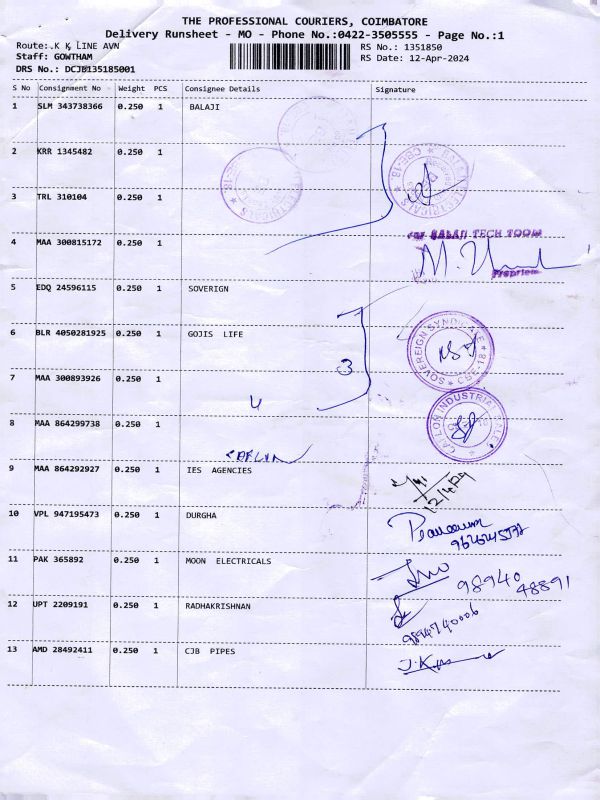 THE PROFESSIONAL COURIERS, COIMBATORE
Delivery Runsheet - MO - Phone No.:0422-3505555 - Page No.:1
Route:.K K LINE AVN
RS No.: 1351850
Staff: GOWTHAM
RS Date: 12-Apr-2024
DRS No.: DCJB135185001
S No Consignment No Weight PCS Consignee Details Signature
1 SLM 343738366 0.250 1 BALAJI
2 KRR 1345482 0.250 1
CBE-18
3 TRL 310104 0.250 1
4 MAA 300815172 0.250 1
For BALAJI TECH TOOLS
Proprietor
5 EDQ 24596115 0.250 1 SOVERIGN
6 BLR 4050281925 0.250 1 GOJIS LIFE
SOVEREIGN SYNDICATE
CBE-18
3
7 MAA 300893926 0.250 1
4
8 MAA 864299738 0.250 1
INDUSTRIAL
9 MAA 864292927 0.250 1 IES AGENCIES
12/4/24
10 VPL 947195473 0.250 1 DURGHA
11 PAK 365892 0.250 1 MOON ELECTRICALS
98940 48891
12 UPT 2209191 0.250 1 RADHAKRISHNAN
9894740006
13 AMD 28492411 0.250 1 CJB PIPES